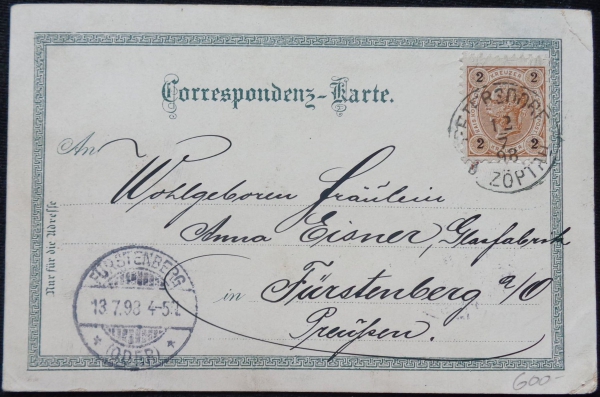 Correspondenz-Karte.
2 KREUZER 2
2 2
PETERSDORF
12
7
98
ZÖPTAU
An
Wohlgeboren Fräulein
Anna Eisner, Glasfabrik
in Fürstenberg a/O
Preußen.
Nur für die Adresse
FÜRSTENBERG
13.7.98 4-5N.
* (ODER) *
600-